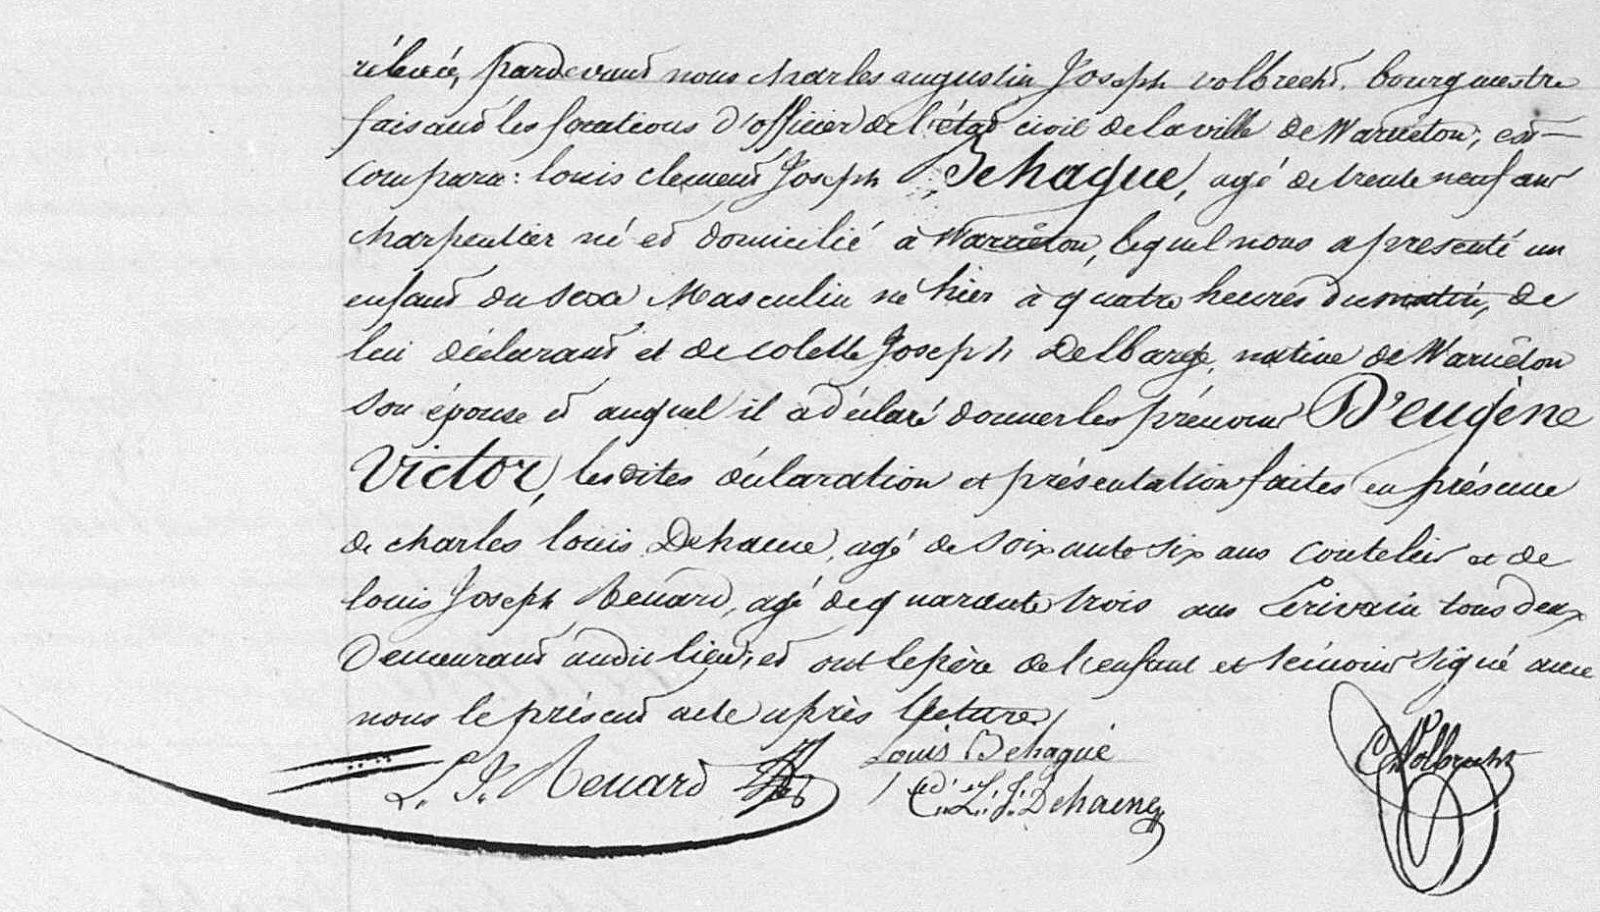 pardevant nous charles augustin Joseph volbrecht, bourgmestre
faisant les fonctions d'officier de l'état civil de la ville de Warneton; est
comparu: louis clement Joseph Behague, agé de trente neuf ans
charpentier né et domicilié à Warneton, lequel nous a presenté un
enfant du sexe Masculin né hier à quatre heures du matin, de
lui déclarant et de colette Joseph Delbarge, native de Warneton
son épouse et auquel il a déclaré donner les prénoms D'eugène
Victor, les dites déclaration et présentation faites en présence
de charles louis Dehaene, agé de soixante six ans coutelier et de
louis Joseph Renard, agé de quarante trois ans Ecrivain tous deux
Demeurant audit lieu; et ont le père de l'enfant et témoins signé avec
nous le présent acte après lecture/
Louis Behague
L. J. Renard C. L. J. Dehaene Volbrecht